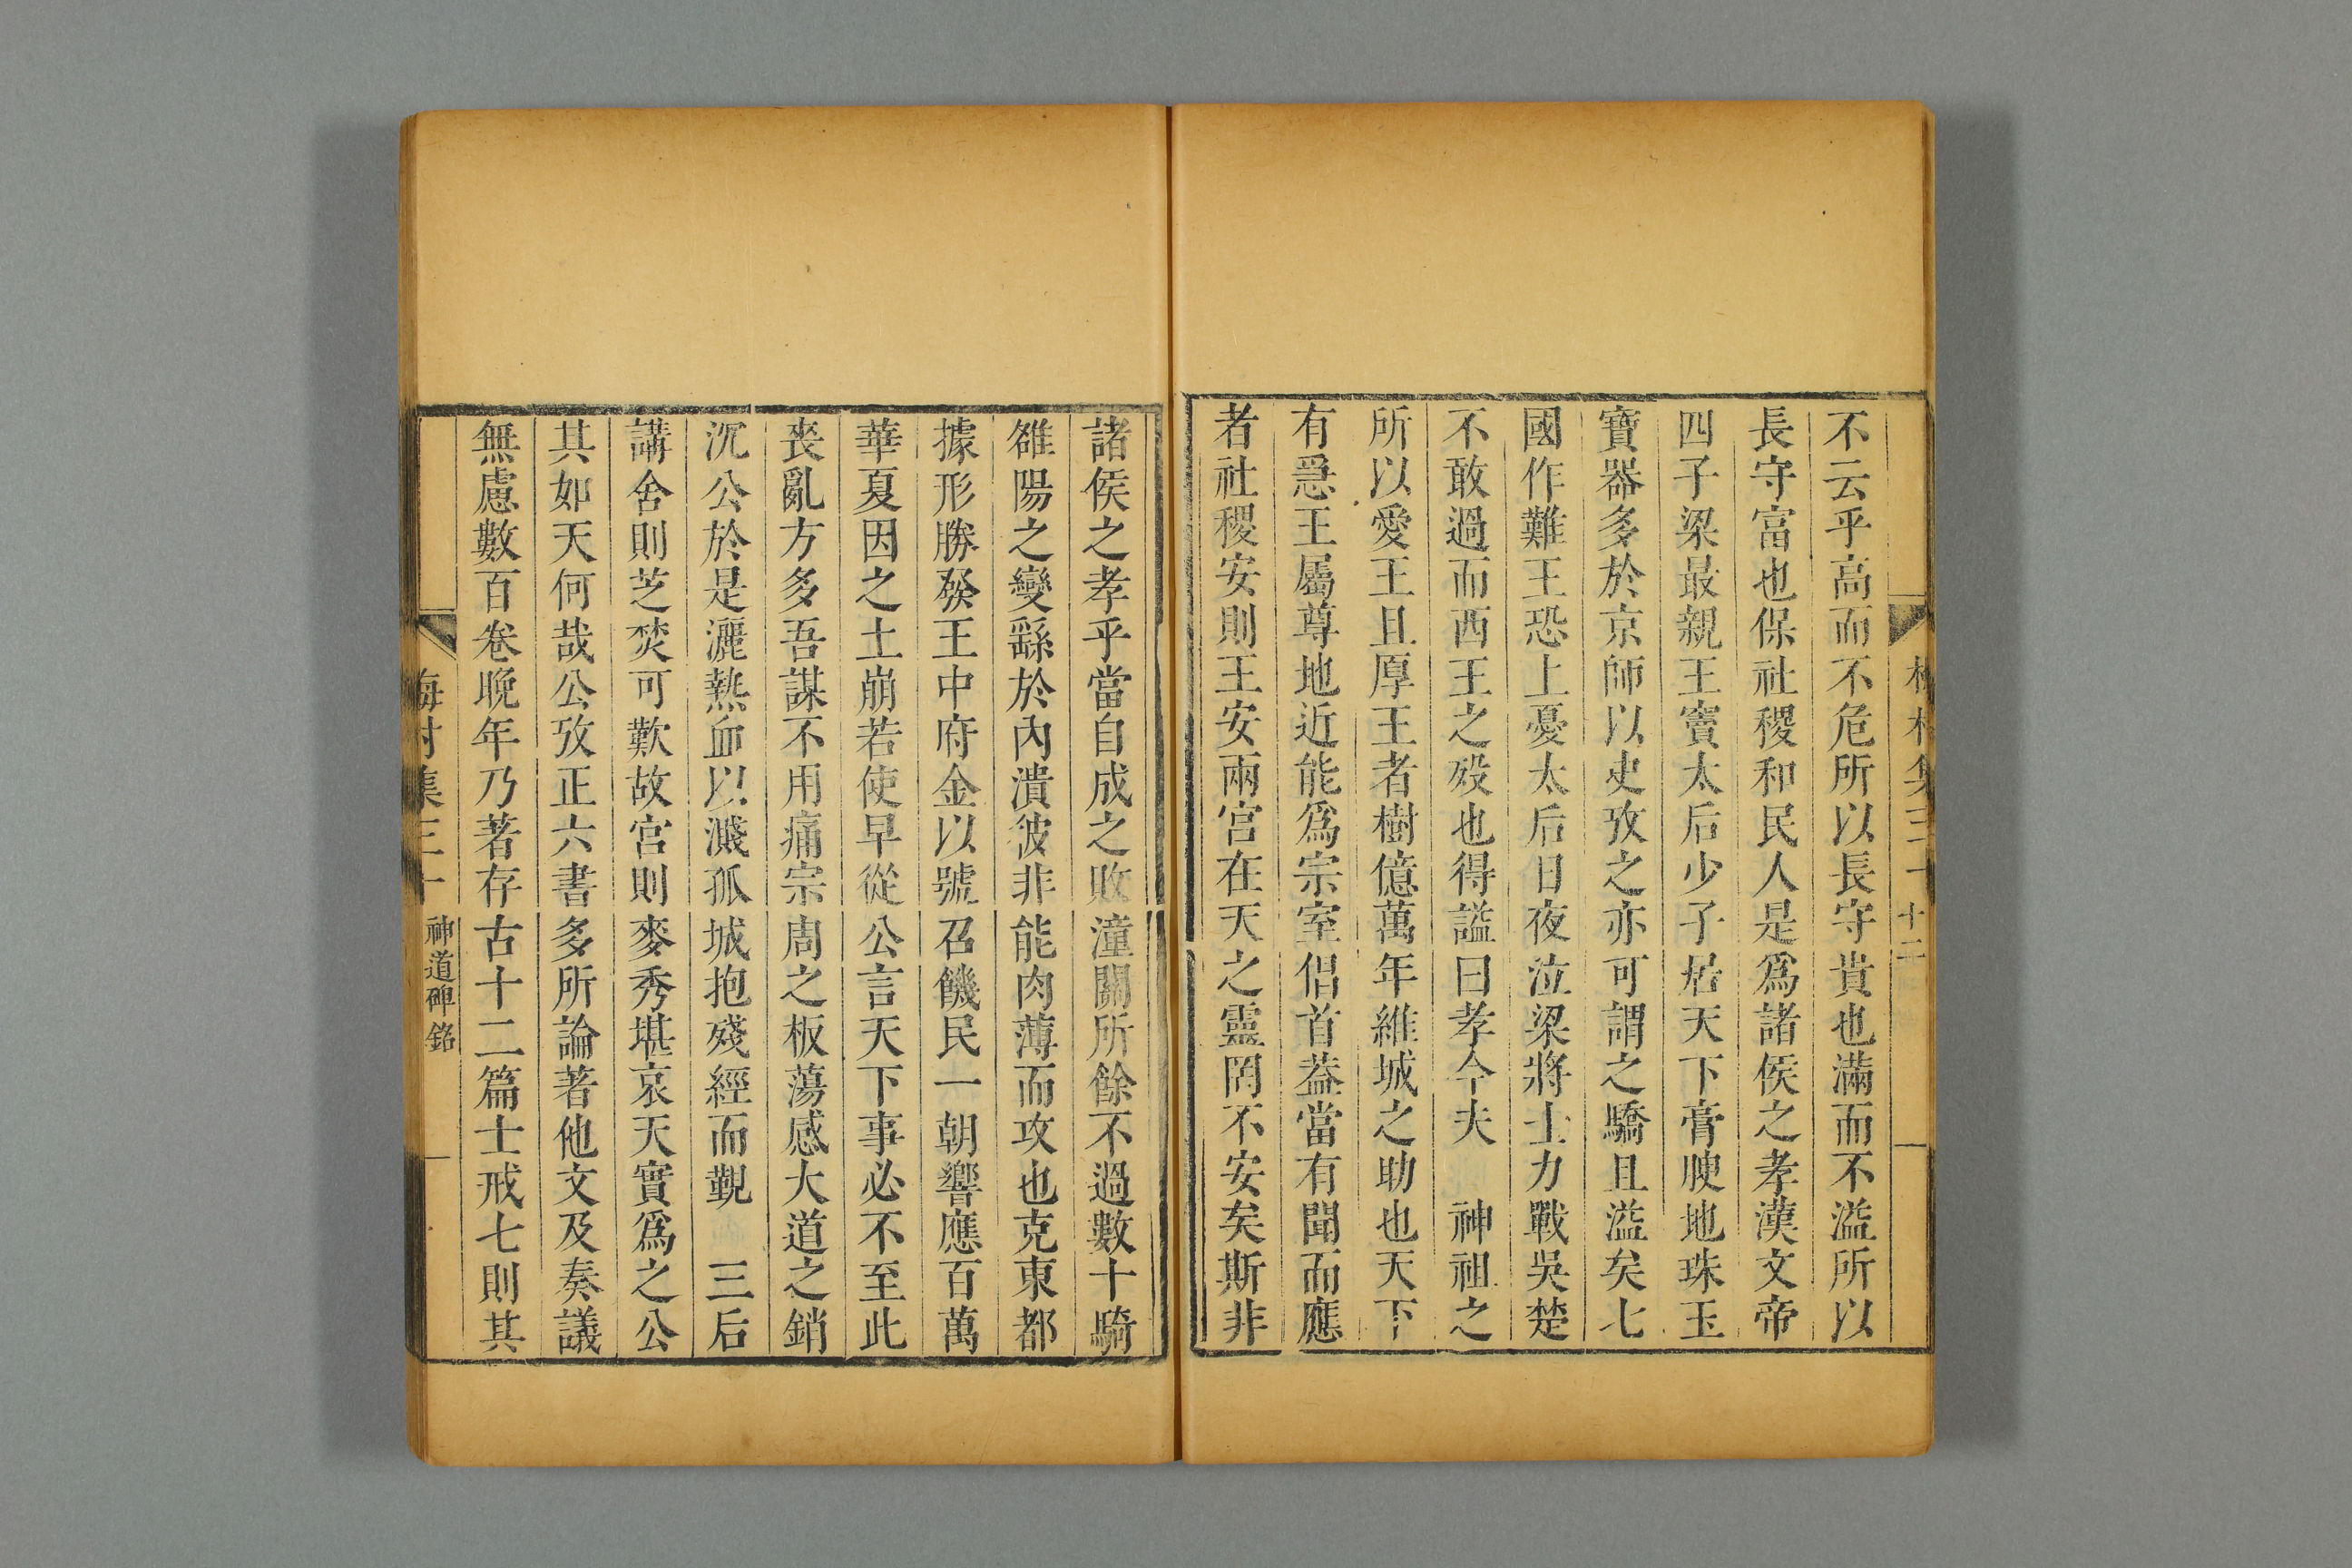 不云乎高而不危所以長守貴也滿而不溢所以
長守富也保社稷和民人是爲諸侯之孝漢文帝
四子梁最親王竇太后少子居天下膏腴地珠玉
寶器多於京師以史攷之亦可謂之驕且溢矣七
國作難王恐上憂太后日夜泣梁將士力戰吳楚
不敢過而西王之歿也得諡曰孝今夫 神祖之
所以愛王且厚王者樹億萬年維城之助也天下
有急王屬尊地近能爲宗室倡首葢當有聞而應
者社稷安則王安兩宮在天之靈罔不安矣斯非
十二
諸侯之孝乎當自成之敗潼關所餘不過數十騎
雒陽之變繇於內潰彼非能肉薄而攻也克東都
據形勝發王中府金以號召饑民一朝響應百萬
華夏因之土崩若使早從公言天下事必不至此
喪亂方多吾謀不用痛宗周之板蕩感大道之銷
沉公於是灑熱血以濺孤城抱殘經而覲 三后
講舍則芝焚可歎故宮則麥秀堪哀天實爲之公
其如天何哉公攷正六書多所論著他文及奏議
無慮數百卷晚年乃著存古十二篇士戒七則其
梅村集三十 神道碑銘